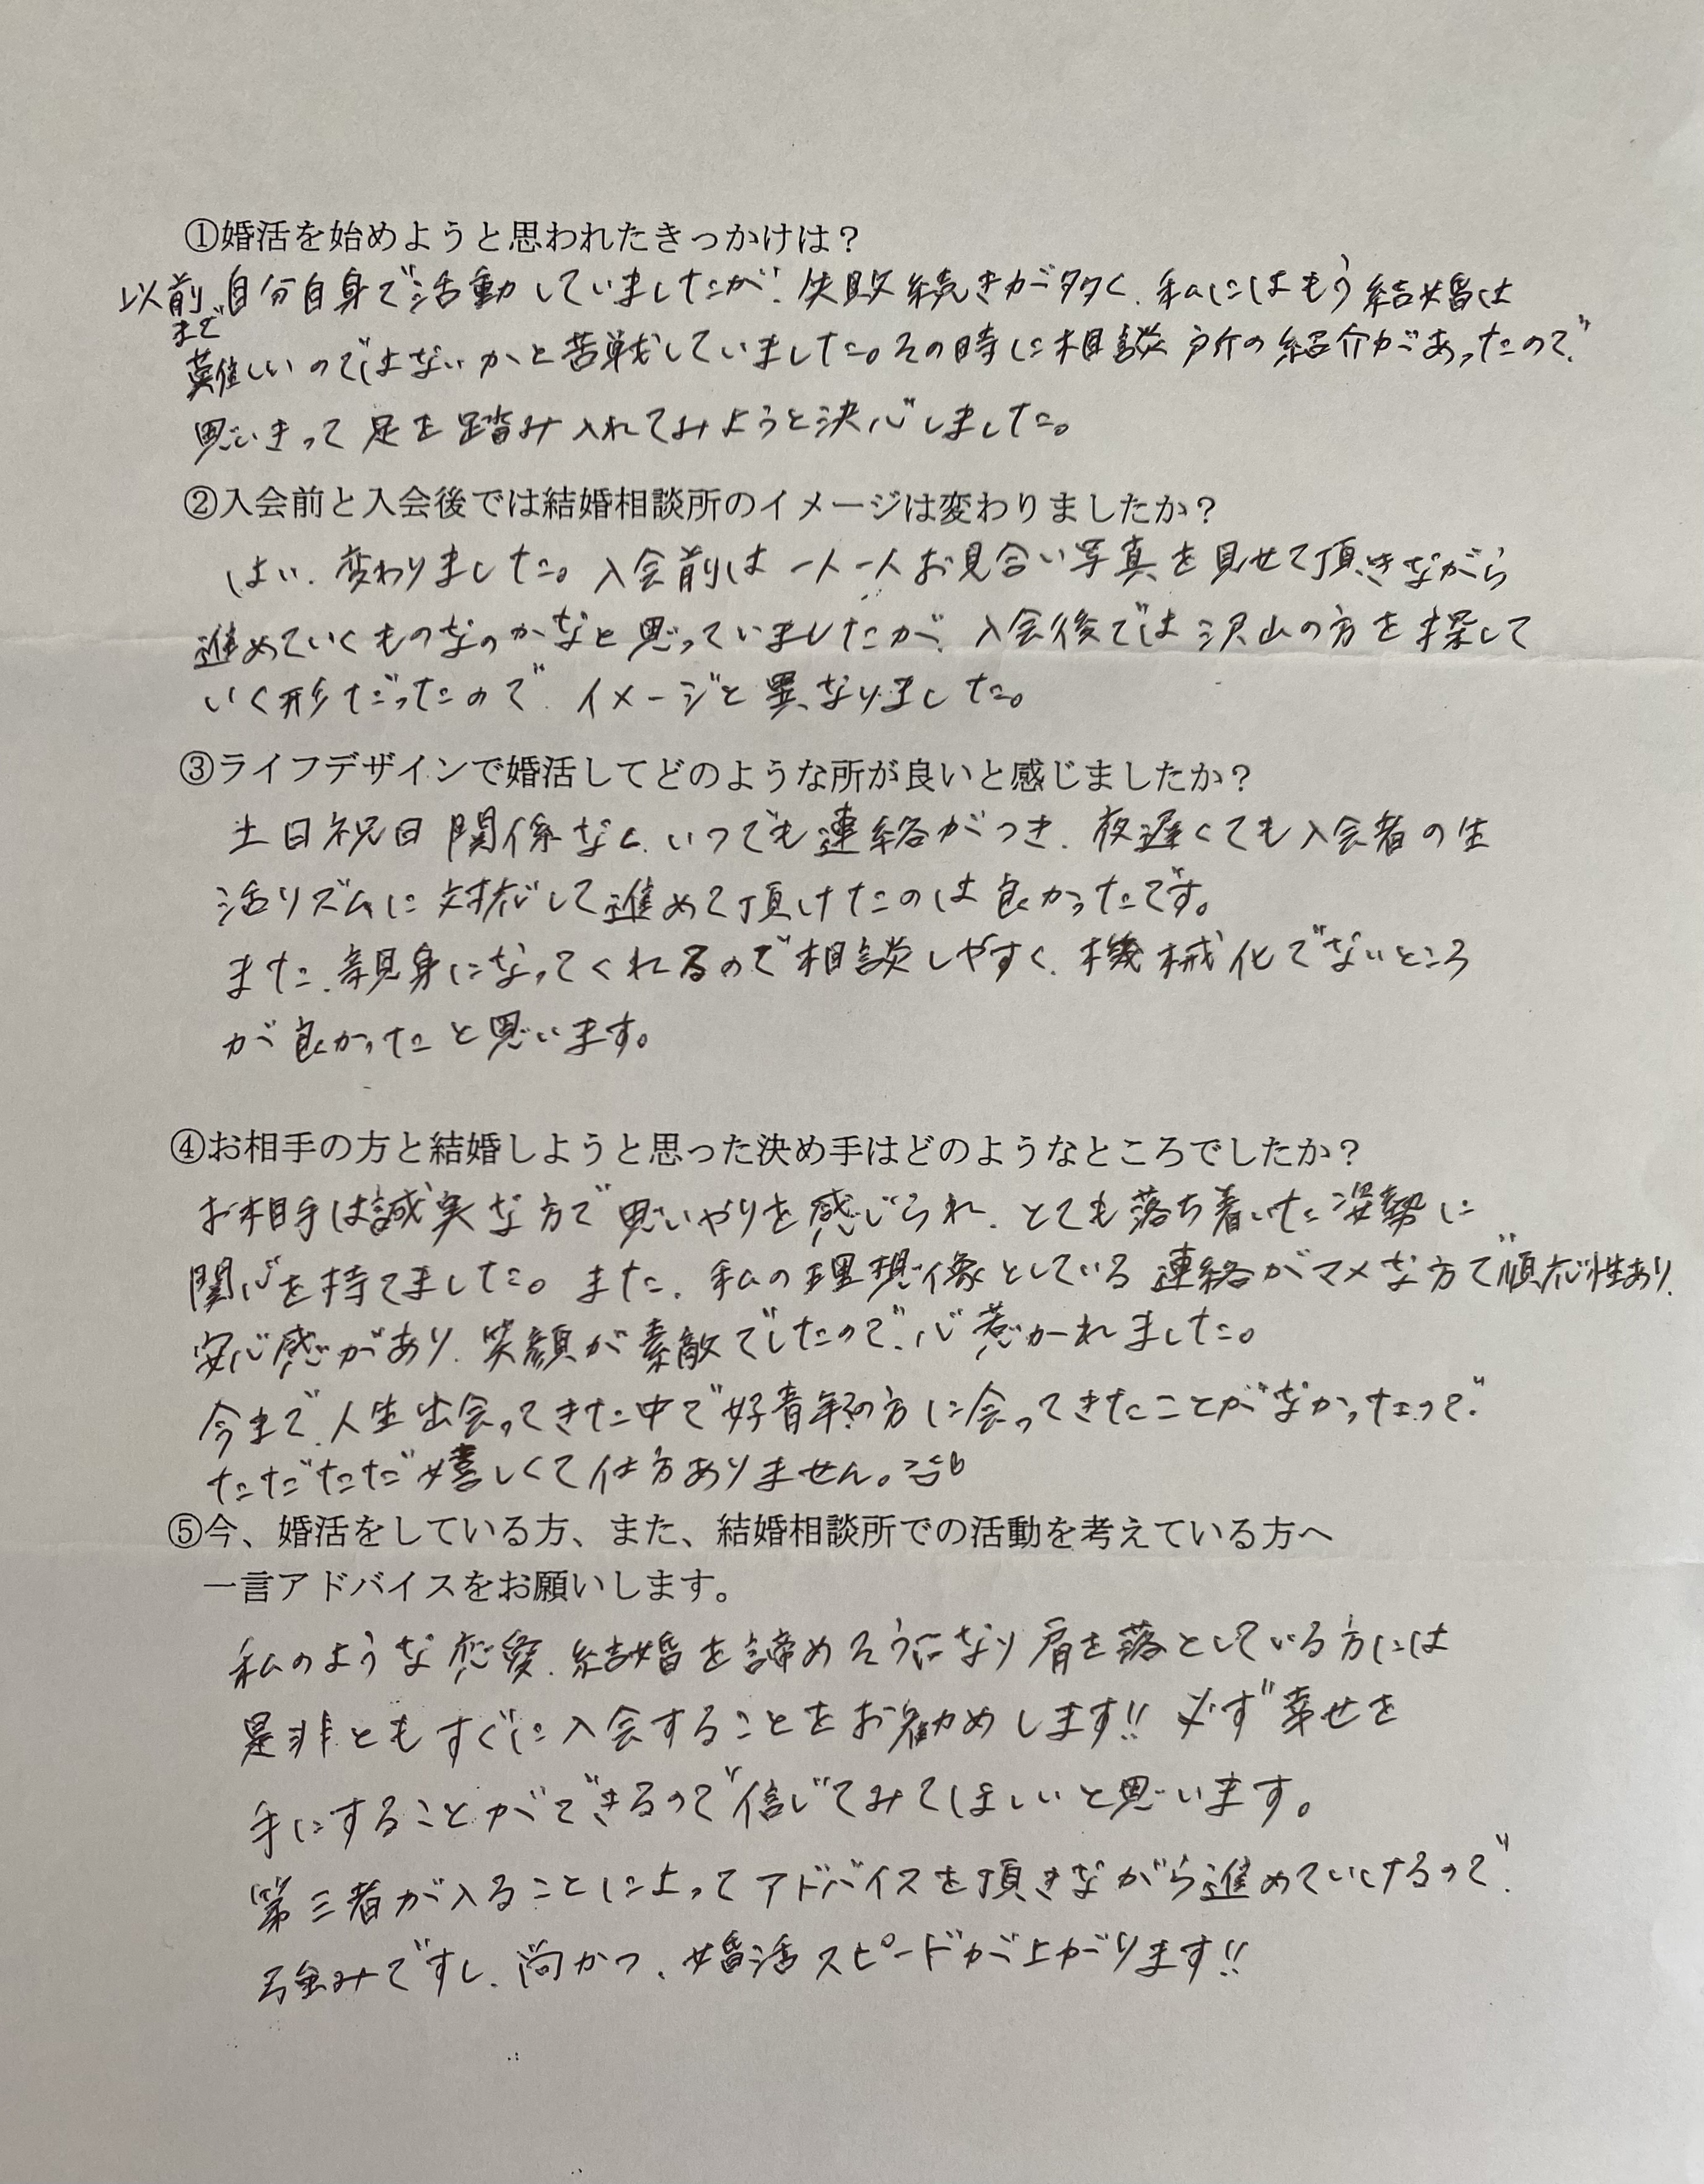 ①婚活を始めようと思われたきっかけは？
以前まで自分自身で活動していましたが、失敗続きが多く、私にはもう結婚は
難しいのではないかと苦戦していました。その時に相談所の紹介があったので、
思いきって足を踏み入れてみようと決心しました。
②入会前と入会後では結婚相談所のイメージは変わりましたか？
はい、変わりました。入会前は一人一人お見合い写真を見せて頂きながら
進めていくものなのかなと思っていましたが、入会後では沢山の方を探して
いく形だったので、イメージと異なりました。
③ライフデザインで婚活してどのような所が良いと感じましたか？
土日祝日関係なく、いつでも連絡がつき、夜遅くても入会者の生
活リズムに対応して進めて頂けたのは良かったです。
また、親身になってくれるので相談しやすく、機械化でないところ
が良かったと思います。
④お相手の方と結婚しようと思った決め手はどのようなところでしたか？
お相手は誠実な方で思いやりを感じられ、とても落ち着いた姿勢に
関心を持てました。また、私の理想像としている連絡がマメな方で順応性あり、
安心感があり、笑顔が素敵でしたので、心惹かれました。
今まで、人生出会ってきた中で好青年の方に会ってきたことがなかったので、
ただただ嬉しくて仕方ありません。
⑤今、婚活をしている方、また、結婚相談所での活動を考えている方へ
一言アドバイスをお願いします。
私のような恋愛、結婚を諦めそうになり肩を落としている方には
是非ともすぐに入会することをお勧めします!! 必ず幸せを
手にすることができるので信じてみてほしいと思います。
第三者が入ることによってアドバイスを頂きながら進めていけるので、
強みですし、尚かつ、婚活スピードが上がります!!